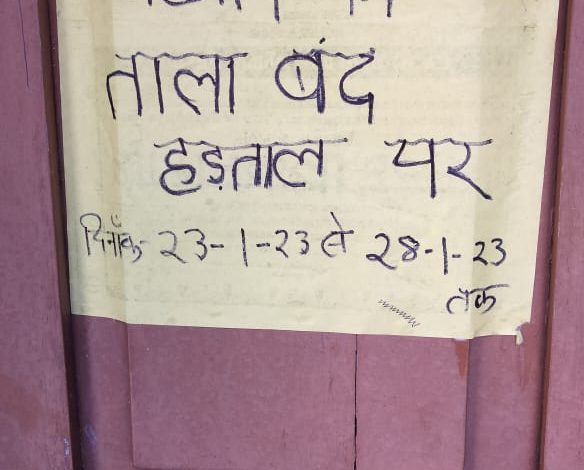 ताला बंद
हड़ताल पर
दिनाँक- 23-1-23 से 28-1-23
तक